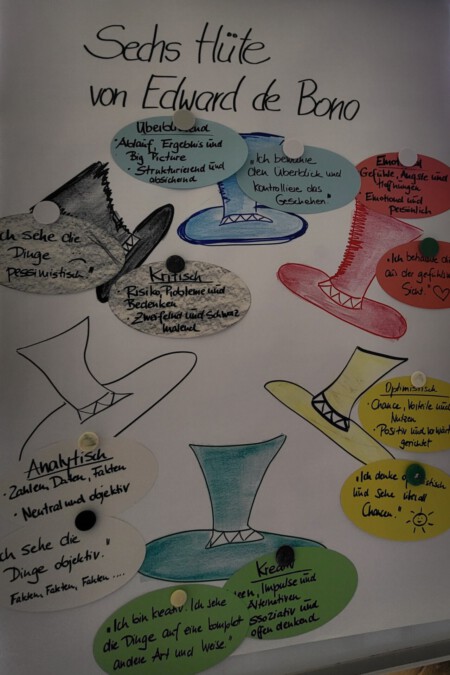 Sechs Hüte
von Edward de Bono
Überblickend
• Ablauf, Ergebnis und
Big Picture
• Strukturierend und
absichernd
"Ich behalte
den Überblick und
kontrolliere das
Geschehen"
Gefühle, Ängste und
Hoffnungen
Emotional und
persönlich
aus der gefühlten
Sicht."
Ich sehe die
Dinge
pessimistisch"
Kritisch
• Risiko, Probleme und
Bedenken
Zweifelnd und Schwarz
malend
Optimistisch
• Chance, Vorteile und
Nutzen
• Positiv und
gerichtet
"Ich denke optimistisch
und sehe überall
Chancen."
Analytisch
• Zahlen, Daten, Fakten
• Neutral und objektiv
Ich sehe die
Dinge objektiv."
Fakten, Fakten, Fakten ....
Kreativ
Impulse und
Alternativen
assoziativ und
offen denkend
"Ich bin kreativ. Ich sehe
die Dinge auf eine komplett
andere Art und Weise"